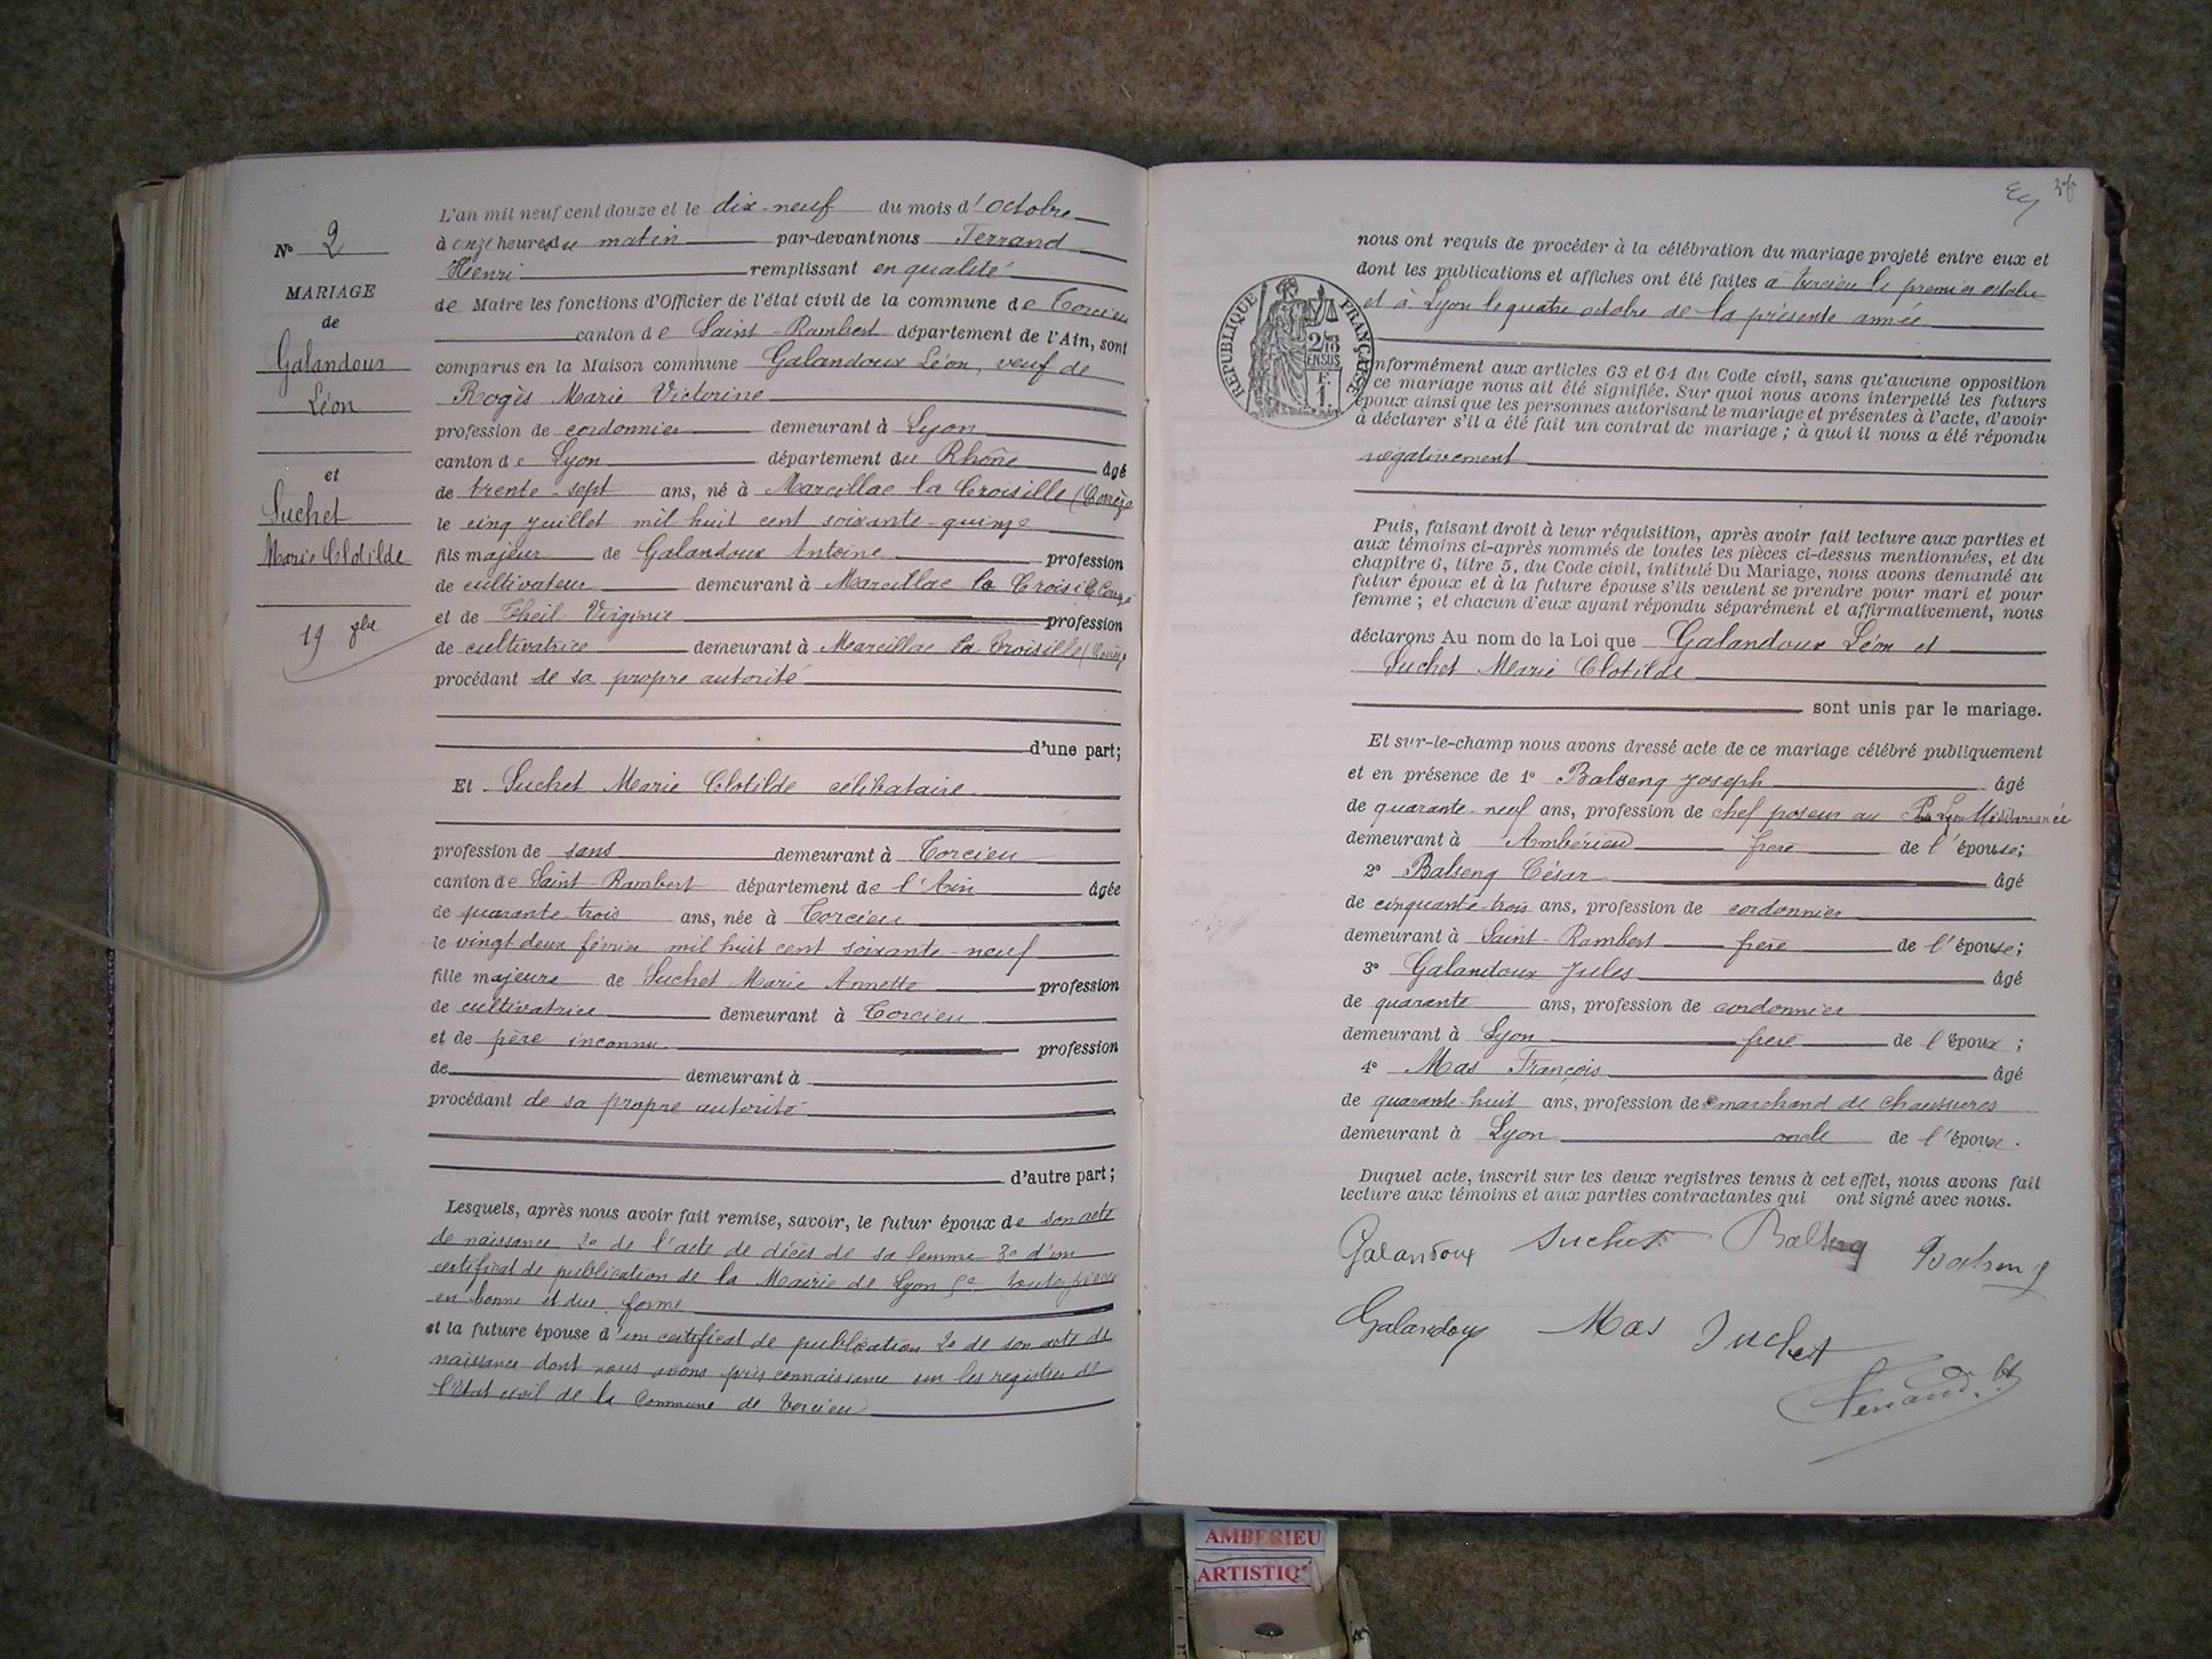 N° 2
MARIAGE
de
Galandoux
Léon
et
Suchet
Marie Clotilde
19 8bre
L'an mil neuf cent douze et le dix-neuf du mois d'octobre
à onze heures du matin par-devant nous Ferrand
Henri remplissant en qualité
de Maire les fonctions d'Officier de l'état civil de la commune de Torcieu
canton de Saint-Rambert département de l'Ain, sont
comparus en la Maison commune Galandoux Léon, veuf de
Rogès Marie Victorine
profession de cordonnier demeurant à Lyon
canton de Lyon département du Rhône âgé
de trente-sept ans, né à Marcillac la Croisille (Corrèze
le cinq juillet mil huit cent soixante-quinze
fils majeur de Galandoux Antoine profession
de cultivateur demeurant à Marcillac la Croisille
et de Theil Virginie profession
de cultivatrice demeurant à Marcillac la Croisille
procédant de sa propre autorité
d'une part;
Et Suchet Marie Clotilde célibataire
profession de sans demeurant à Torcieu
canton de Saint Rambert département de l'Ain âgée
de quarante-trois ans, née à Torcieu
le vingt deux février mil huit cent soixante-neuf
fille majeure de Suchet Marie Annette profession
de cultivatrice demeurant à Torcieu
et de père inconnu profession
de demeurant à
procédant de sa propre autorité
d'autre part;
Lesquels, après nous avoir fait remise, savoir, le futur époux de son acte
de naissance 2° de l'acte de décès de sa femme 3° d'un
certificat de publication de la Mairie de Lyon
en bonne et due forme
et la future épouse d'un certificat de publication 2° de son acte de
naissance dont nous avons pris connaissance sur les registres de
l'état civil de la Commune de Torcieu
nous ont requis de procéder à la célébration du mariage projeté entre eux et
dont les publications et affiches ont été faites à Torcieu le premier octobre
et à Lyon le quatre octobre de la présente année
REPUBLIQUE FRANÇAISE
nformément aux articles 63 et 64 du Code civil, sans qu'aucune opposition
ce mariage nous ait été signifiée. Sur quoi nous avons interpellé les futurs
époux ainsi que les personnes autorisant le mariage et présentes à l'acte, d'avoir
à déclarer s'il a été fait un contrat de mariage ; à quoi il nous a été répondu
négativement
Puis, faisant droit à leur réquisition, après avoir fait lecture aux parties et
aux témoins ci-après nommés de toutes les pièces ci-dessus mentionnées, et du
chapitre 6, titre 5, du Code civil, intitulé Du Mariage, nous avons demandé au
futur époux et à la future épouse s'ils veulent se prendre pour mari et pour
femme ; et chacun d'eux ayant répondu séparément et affirmativement, nous
déclarons Au nom de la Loi que Galandoux Léon et
Suchet Marie Clotilde
sont unis par le mariage.
Et sur-le-champ nous avons dressé acte de ce mariage célébré publiquement
et en présence de 1° Balseng Joseph âgé
de quarante-neuf ans, profession de chef poseur au
demeurant à Ambérieu frère de l'épouse;
2° Balseng César âgé
de cinquante-trois ans, profession de cordonnier
demeurant à Saint-Rambert frère de l'épouse;
3° Galandoux Jules âgé
de quarante ans, profession de cordonnier
demeurant à Lyon frère de l'époux ;
4° Mas François âgé
de quarante-huit ans, profession de marchand de chaussures
demeurant à Lyon oncle de l'époux.
Duquel acte, inscrit sur les deux registres tenus à cet effet, nous avons fait
lecture aux témoins et aux parties contractantes qui ont signé avec nous.
Galandoux Suchet Balseng Balseng
Galandoux Mas Suchet
Ferrand H
AMBERIEU
ARTISTIQ